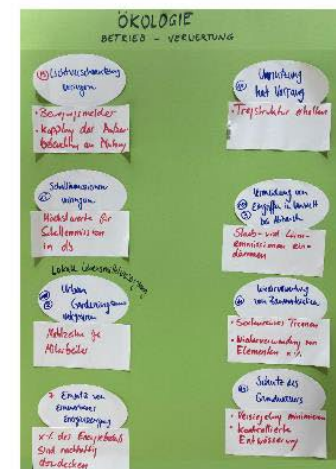 ÖKOLOGIE
BETRIEB - VERWERTUNG
Lichtverschmutzung
verringern
• Bewegungsmelder
• Kopplung der Außen-
beleuchtung an Nutzung
Schallemissionen
verringern
Höchstwerte für
Schallemission
in db
Lokale Lebensmittelversorgung
Urban
Gardening
integrieren
Mitarbeiter
Einsatz von
erneuerbarer
Energieversorgung
x % des Energiebedarfs
sind nachhaltig
abzudecken
Umnutzung
hat Vorrang
• Tragstruktur erhalten
Vermeidung von
Eingriffen in Umwelt
bei Abbruch
Staub- und Lärm-
emissionen ein-
dämmen
Wiederverwertung
von Bauwerksteilen
• Sortenreines Trennen
• Wiederverwendung von
Elementen x %
Schutz des
Grundwassers
• Versiegelung minimieren
• Kontrollierte
Entwässerung